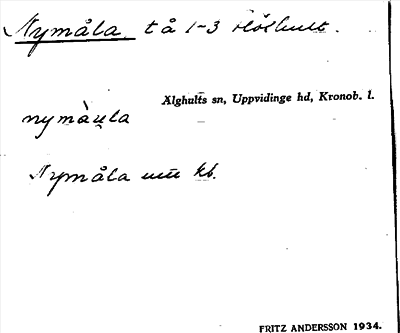 Nymåla tå 1-3 Hölhult.
Älghults sn, Uppvidinge hd, Kronob. l.
nymàu̯la
Nymåla uu kb.
FRITZ ANDERSSON 1934.